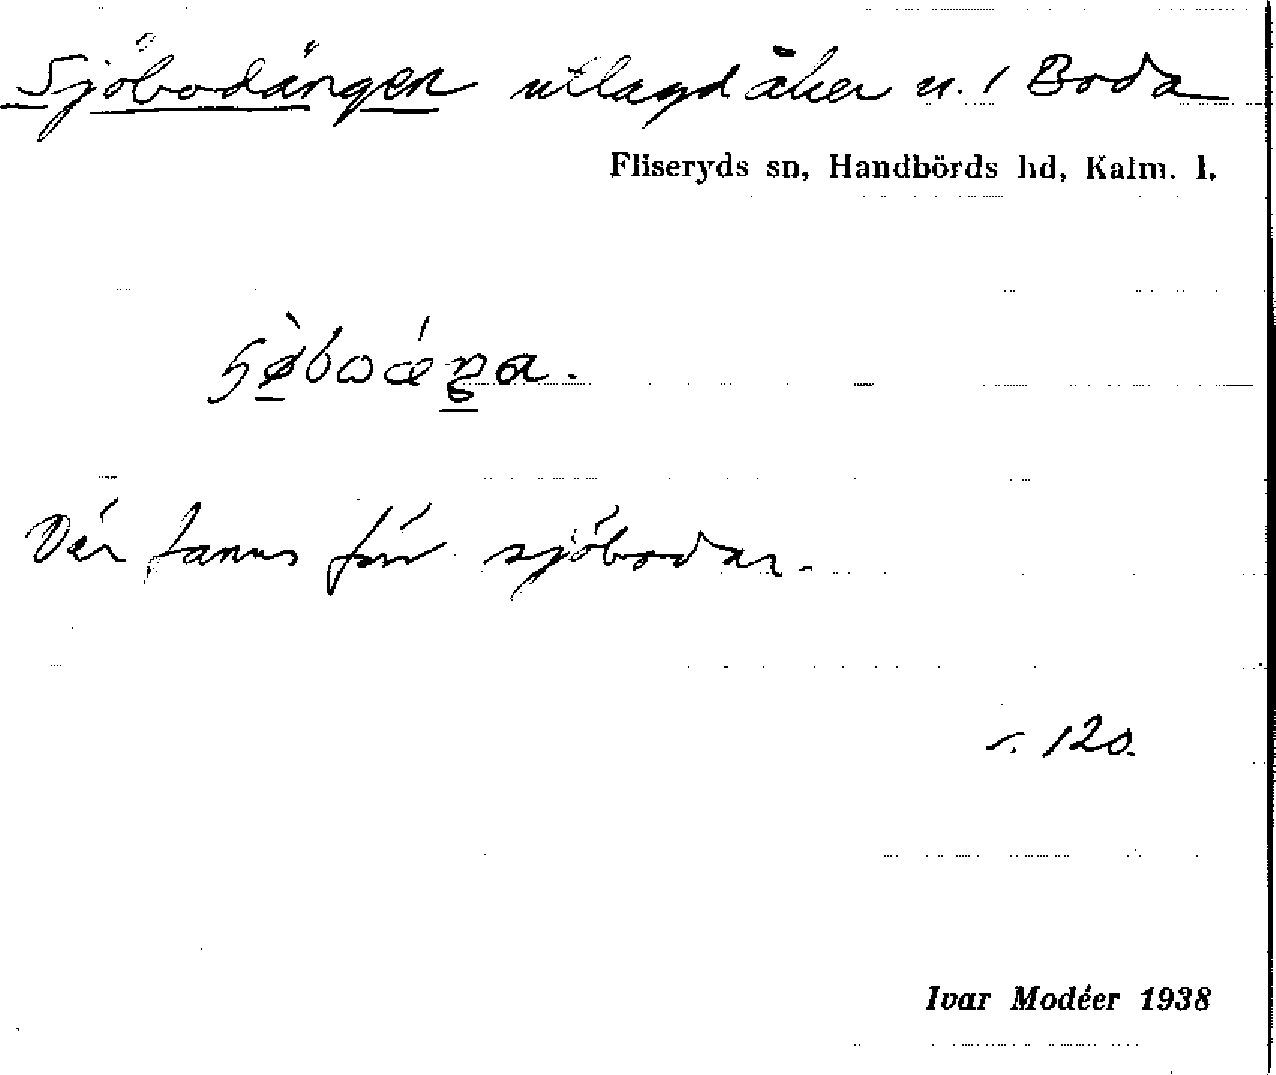 Sjöbodängen utlagd åker u. 1 Boda
Fliseryds sn, Handbörds hd, Kalm. l.
Där fanns förr sjöbodar.
s. 120.
Ivar Modéer 1938